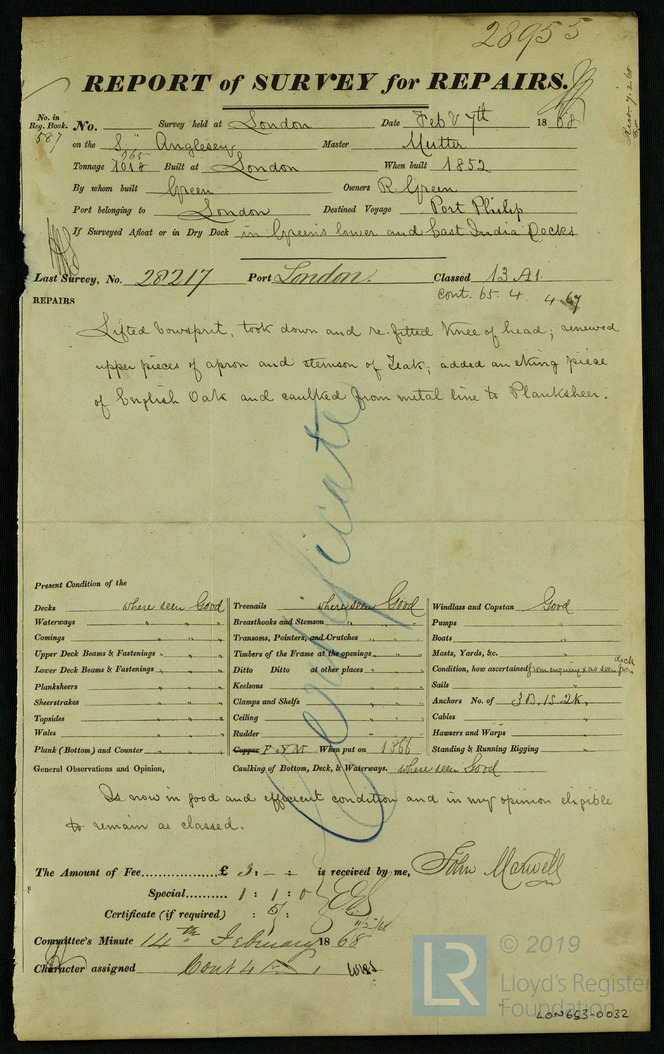 28955
REPORT of SURVEY for REPAIRS.
No. in Reg. Book. 587
No. Survey held at London Date Feb 7th 1868
on the S," Anglesey Master
Tonnage 965 1018 Built at London When built 1852
By whom built Green Owners R. Green
Port belonging to London Destined Voyage Port Philip
If Surveyed Afloat or in Dry Dock in Green's lower and East India Docks
Last Survey, No. 28217 Port London. Classed 13 A1.
cont. 65. 4. 4 67
REPAIRS
Lifted bowsprit, took down and re-fitted Knee of head; renewed
upper pieces of apron and stemson of Teak; added an eking piece
of English Oak and caulked from metal line to Planksheer.
Certificate
Present Condition of the
Decks where seen Good
Waterways " " "
Comings " " "
Upper Deck Beams & Fastenings " " "
Lower Deck Beams & Fastenings " " "
Planksheers " " "
Sheerstrakes " " "
Topsides " " "
Wales " " "
Plank (Bottom) and Counter " " "
Treenails where seen Good
Breasthooks and Stemson " "
Transoms, Pointers, and Crutches " "
Timbers of the Frame at the openings " "
Ditto Ditto at other places " "
Keelsons " "
Clamps and Shelfs " "
Ceiling " "
Rudder " "
Copper F & YM When put on 1866
Caulking of Bottom, Deck, & Waterways. where seen Good
Windlass and Capstan Good
Pumps "
Boats "
Masts, Yards, &c. "
Condition, how ascertained from enquiry & as seen from deck
Sails "
Anchors No. of 3B, 1S. 2K,
Cables "
Hawsers and Warps "
Standing & Running Rigging "
General Observations and Opinion,
Is now in good and efficient condition and in my opinion eligible
to remain as classed.
The Amount of Fee £ 3. – – is received by me, John Maxwell
Special 1 : 1 : 0
Certificate (if required) : 5/ :
11/2/68
Committee's Minute 14th February 1868
Character assigned Cont 4
© 2019
LR
Lloyd's Register
Foundation
LON663-0032